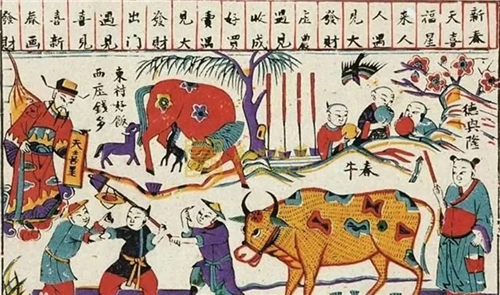 新春天喜福星來人人遇見大發財莊農遇見收成好買賣遇見大發財出門遇見喜見喜新春畫發財
東村好飯
西庄錢多
春牛
德興隆